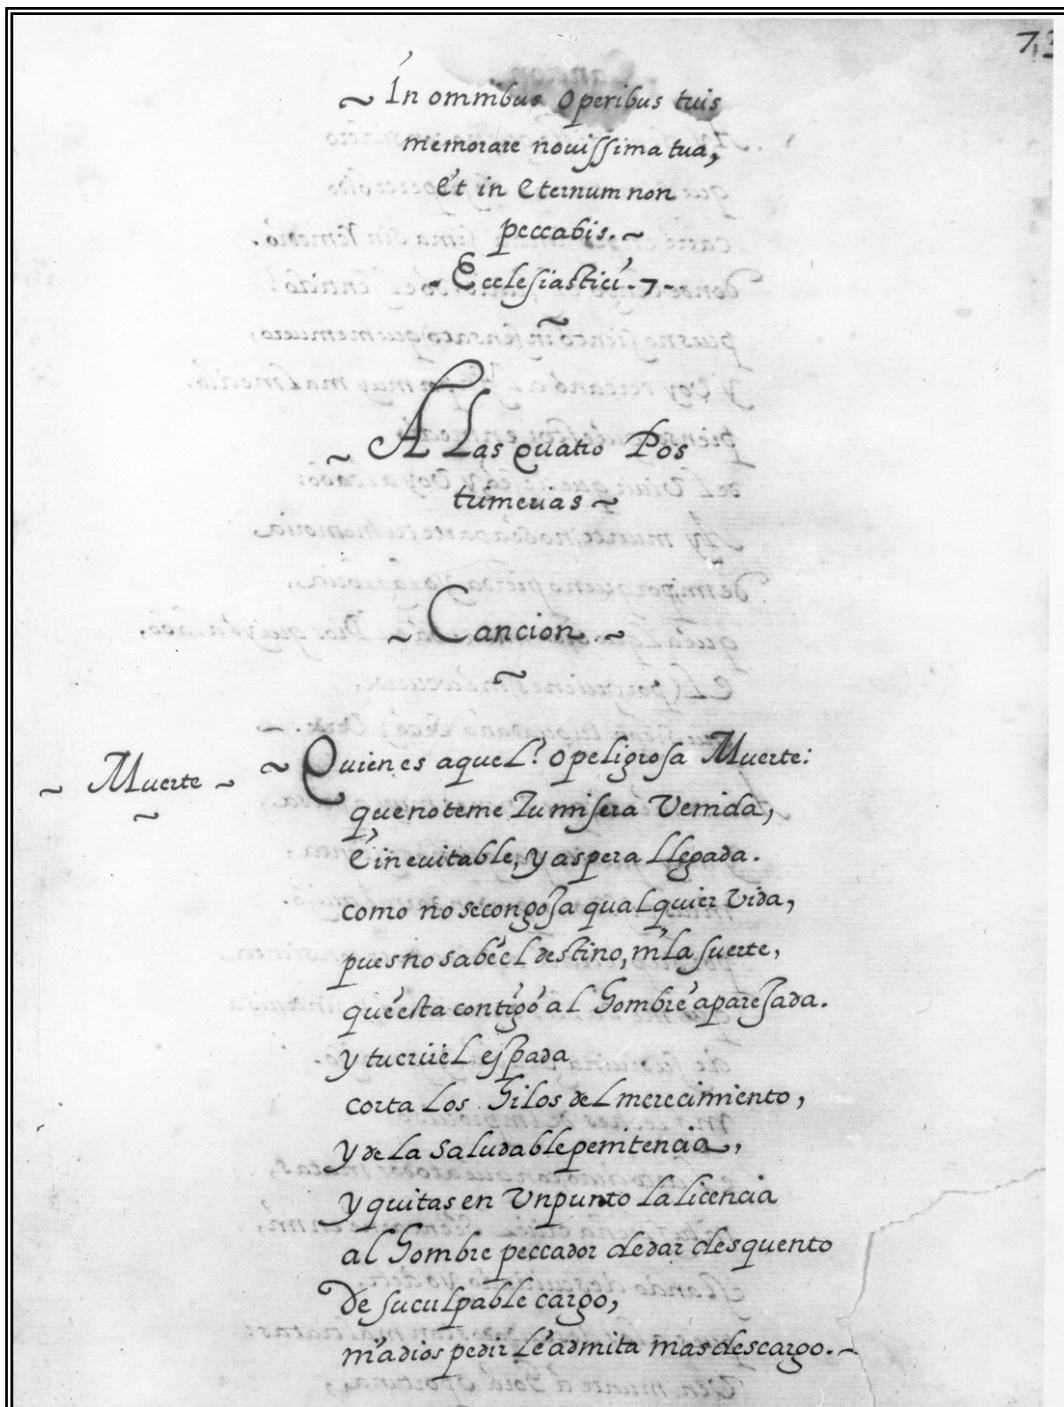 73
~ In omnibus operibus tuis
memorare nouissima tua,
et in eternum non
peccabis. ~
~ Ecclesiastici - 7 -
~ A Las quatro Pos
trimerias ~
~ Cancion ~
~ Muerte ~
~ Quien es aquel? o peligrosa Muerte:
que no teme tu misera Venida,
e ineuitable, y aspera llegada.
como no se congoja qualquier vida,
pues no sabe el destino, ni la suerte,
que esta contigo al hombre aparejada.
y tu cruel espada
corta los hilos del merecimiento,
y de la saludable penitencia,
y quitas en Vn punto la licencia
al hombre peccador de dar desquento
De su culpable cargo,
ni a dios pedir le admita mas descargo. ~